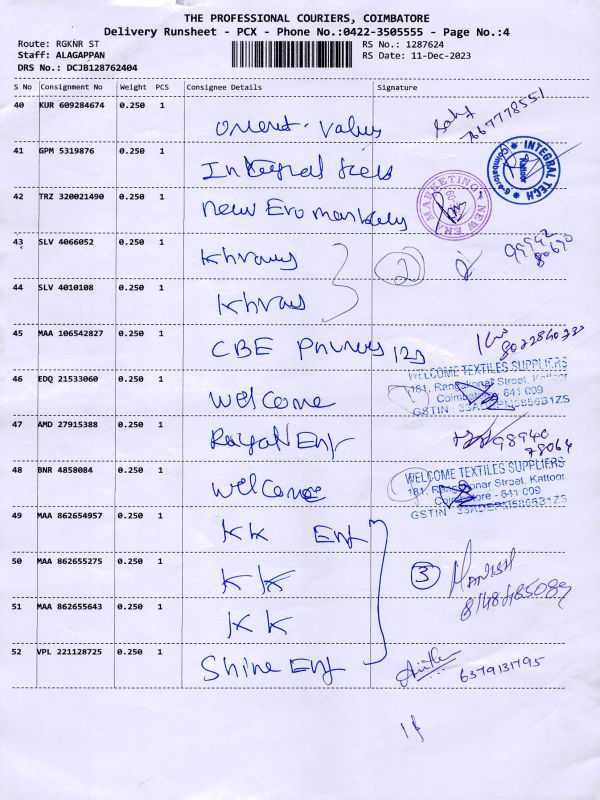 THE PROFESSIONAL COURIERS, COIMBATORE
Delivery Runsheet - PCX - Phone No.:0422-3505555 - Page No.:4
Route: RGKNR ST RS No.: 1287624
Staff: ALAGAPPAN RS Date: 11-Dec-2023
DRS No.: DCJB128762404
S No Consignment No Weight PCS Consignee Details Signature
40 KUR 609284674 0.250 1
7667778551
41 GPM 5319876 0.250 1 Integral
INTEGRAL TECH Coimbatore
42 TRZ 320021490 0.250 1 New Era
MARKETING NEW ERA
43 SLV 4066052 0.250 1 Khraus 2
99942
80690
44 SLV 4010108 0.250 1 Khraus
45 MAA 106542827 0.250 1 CBE
46 EDQ 21533060 0.250 1 Welcome
WELCOME TEXTILES SUPPLIERS
181, Rangakonar Street, Kattoor
Coimbatore - 641 009
GSTIN
47 AMD 27915388 0.250 1 Rayan Ent
98940
78064
48 BNR 4858084 0.250 1 Welcome
WELCOME TEXTILES SUPPLIERS
181, Rangakonar Street, Kattoor
Coimbatore - 641 009
GSTIN
49 MAA 862654957 0.250 1 KK Ent
50 MAA 862655275 0.250 1 KK 3
51 MAA 862655643 0.250 1 KK
52 VPL 221128725 0.250 1 Shine Ent
6379131795